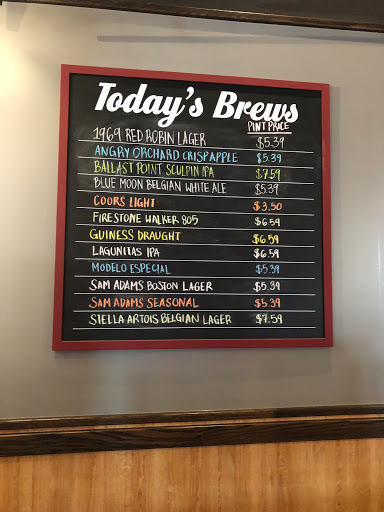 Today's Brews
PINT PRICE
1969 RED ROBIN LAGER $5.39
ANGRY ORCHARD CRISP APPLE $5.39
BALLAST POINT SCULPIN IPA $7.59
BLUE MOON BELGIAN WHITE ALE $5.39
COORS LIGHT $3.50
FIRESTONE WALKER 805 $6.59
GUINESS DRAUGHT $6.59
LAGUNITAS IPA $6.59
MODELO ESPECIAL $5.39
SAM ADAMS BOSTON LAGER $5.39
SAM ADAMS SEASONAL $5.39
STELLA ARTOIS BELGIAN LAGER $7.59